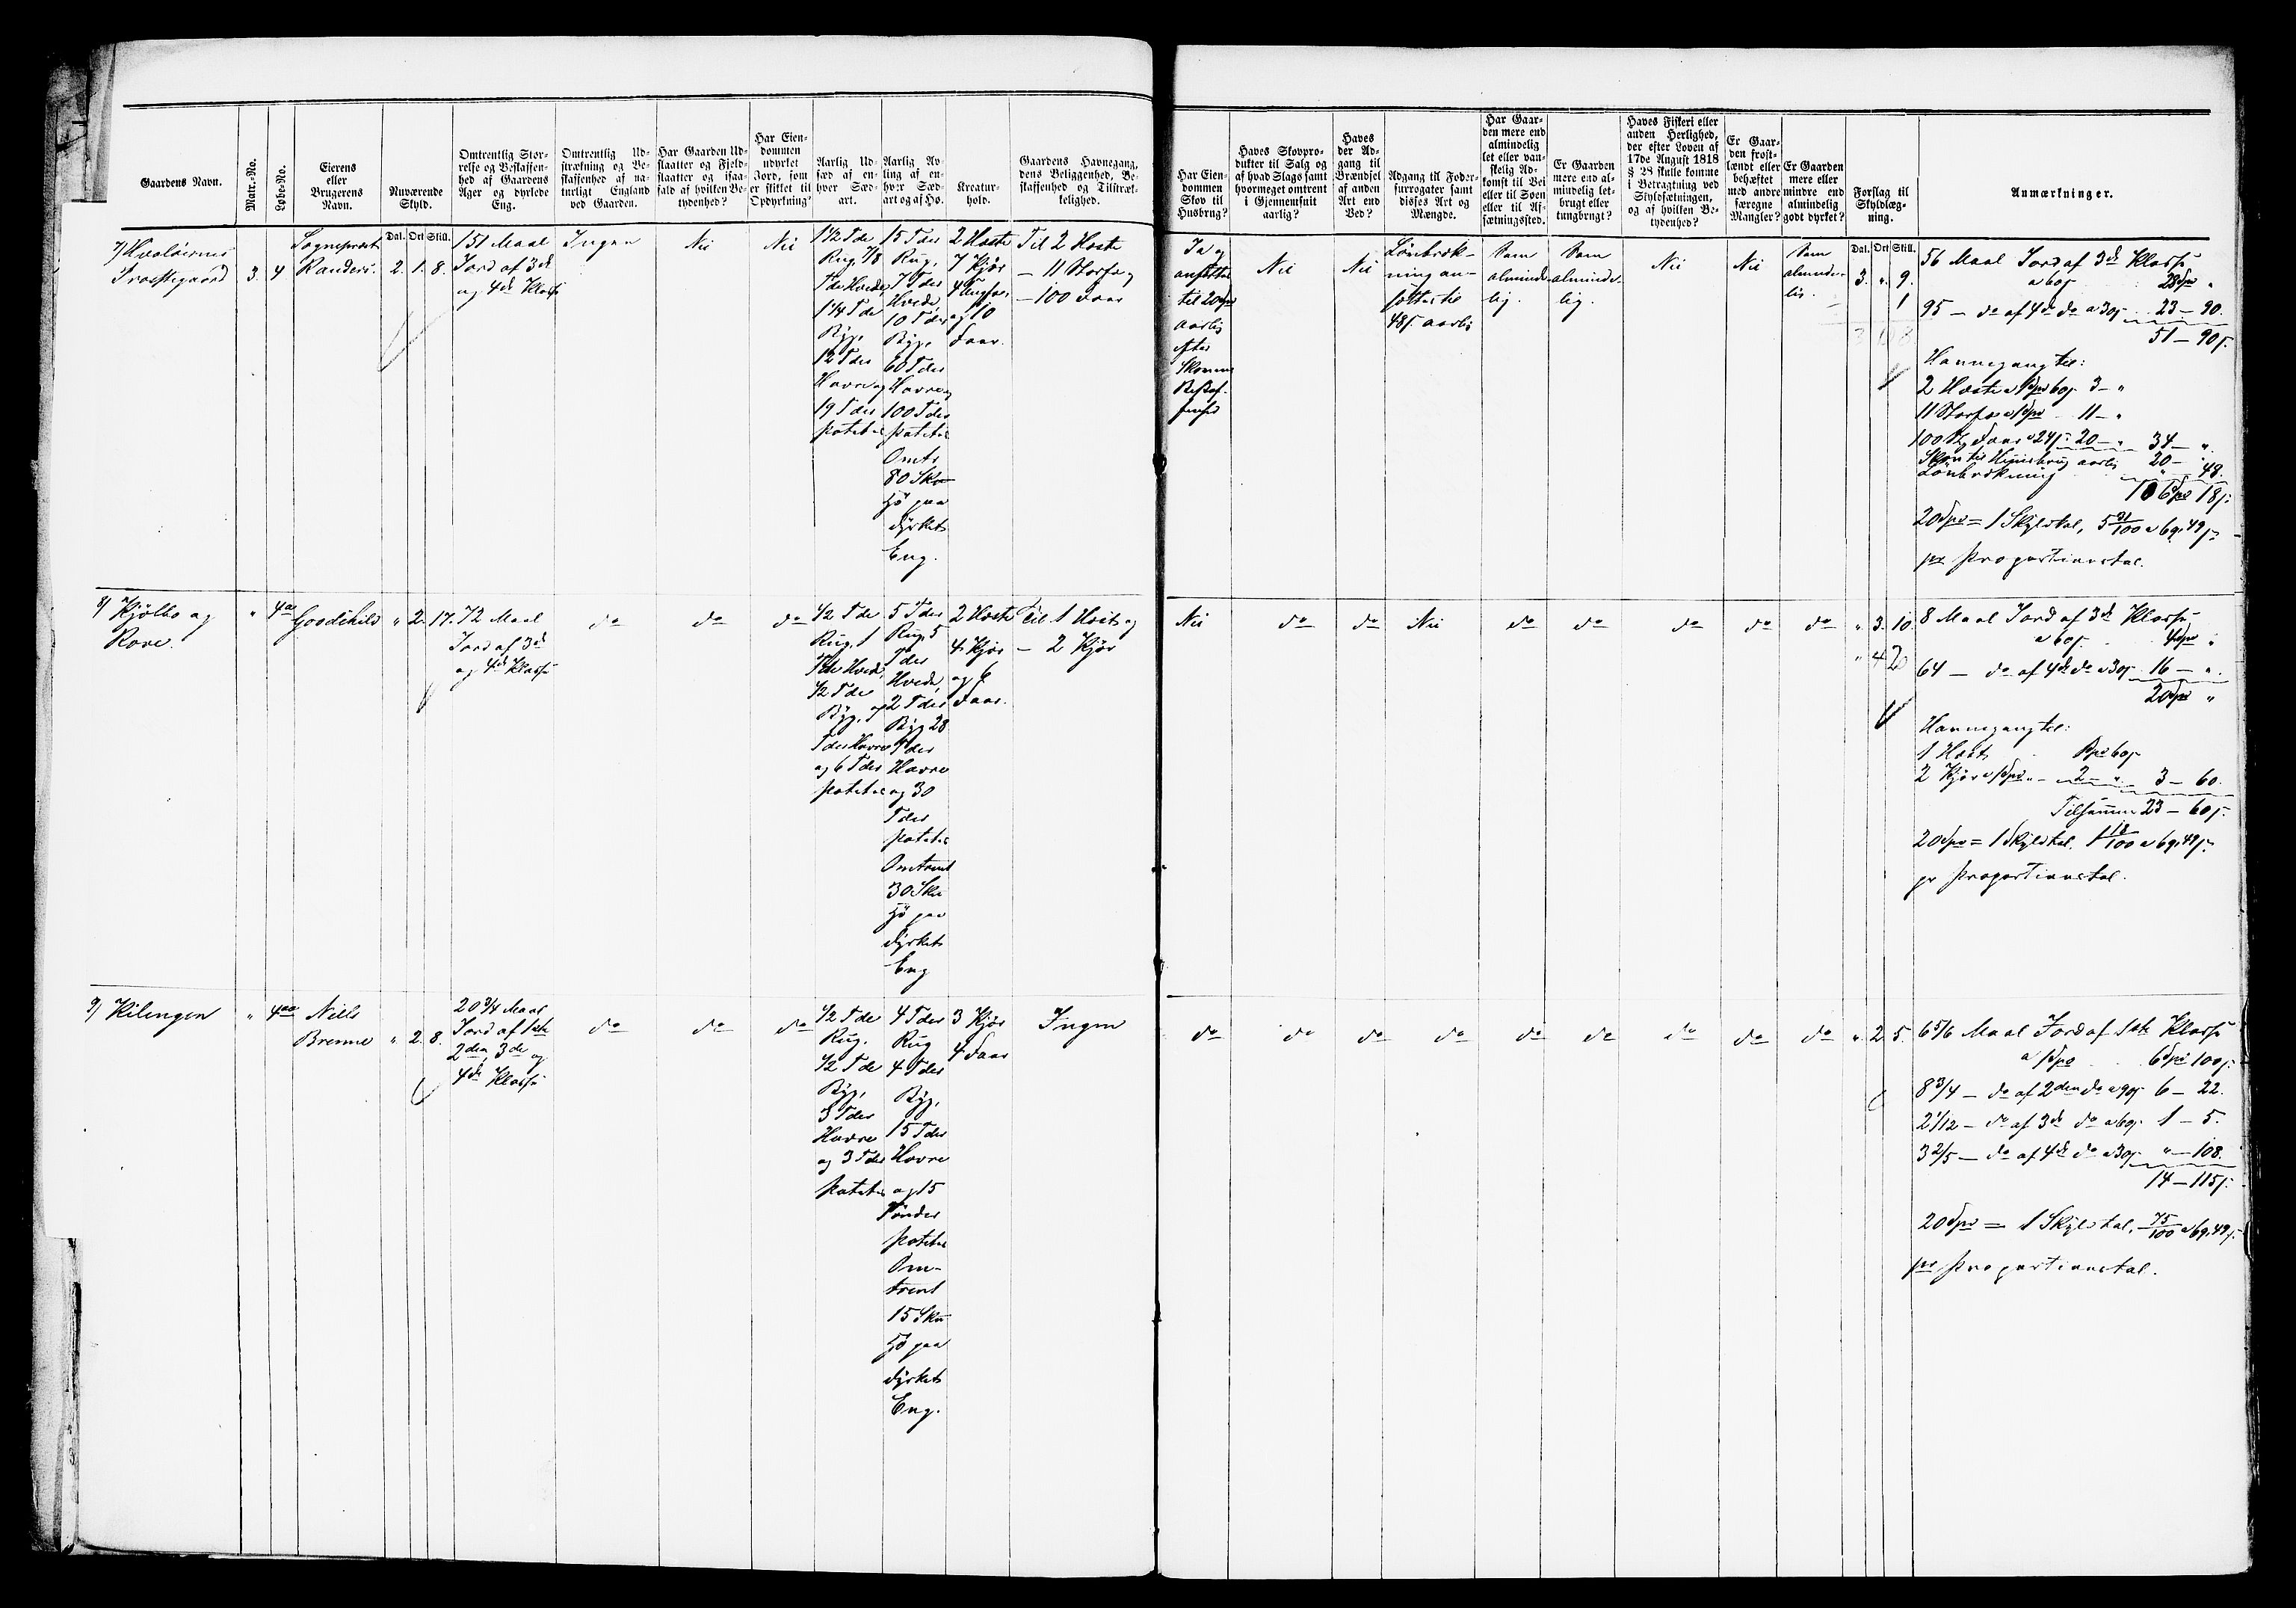 Gaardens Navn.
Matr.-No.
Løbe-No.
Eierens
eller
Brugerens
Navn.
Nuværende
Skyld.
Omtrentlig Stør-
relse og Beskaffen-
hed af Gaardens
Ager og dyrkede
Eng.
Omtrentlig Ud-
strækning og Be-
skaffenhed af na-
turligt England
ved Gaarden.
Har Gaarden Ud-
slaatter og Fjeld-
slaatter og isaa-
fald af hvilken Be-
tydenhed?
Har Eien-
dommen
udyrket
Jord, som
er skikket til
Opdyrkning?
Aarlig Ud-
sæd af en-
hver Sæd-
art.
Aarlig Av-
ling af en-
hver Sæd-
art og af Hø.
Kreatur-
hold.
Gaardens Havnegang,
dens Beliggenhed, Be-
skaffenhed og Tilstræk-
kelighed.
Har Eien-
dommen
Skov til
Husbrug?
Haves Skovpro-
dukter til Salg og
af hvad Slags samt
hvormeget omtrent
i Gjennemsnit
aarlig?
Haves
der Ad-
gang til
Brændsel
af anden
Art end
Ved?
Adgang til Foder-
surrogater samt
disses Art og
Mængde.
Har Gaar-
den mere end
almindelig
let eller van-
skelig Ad-
komst til Vei
eller til Søen
eller til Af-
sætningssted.
Er Gaarden
mere end al-
mindelig let-
brugt eller
tungbrugt?
Haves Fiskeri eller
anden Herlighed,
der efter Loven af
17de August 1818
§ 28 skulle komme
i Betragtning ved
Skyldsætningen,
og af hvilken Be-
tydenhed?
Er Gaar-
den frost-
lændt eller
behæftet
med andre
færegne
Mangler?
Er Gaarden
mere eller
mindre end
almindelig
godt dyrket?
Forslag til
Skyldlæg-
ning.
Anmærkninger.
Dal. Ort Skill.
Dal. Ort Skill.
7/ Hvaløernes
Præstegaard
3.
4
Sognepræst
Randers.
2. 1. 8.
151 Maal
Jord af 3de
og 4de Klasse
Ingen
Nei
Nei
1 1/2 Tde
Rug, 7/8
Tde Hvede,
1 1/4 Tde
Byg,
12 Tder
Havre og
19 Tder
Poteter
15 Tder
Rug,
7 Tder
Hvede,
10 Tder
Byg,
60 Tder
Havre og
100 Tder
Poteter
Omtr
80 Sk℔
Hø paa
dyrket
Eng.
2 Heste
7 Kjør
4 Ungfæ,
og 10
Faar.
Til 2 Heste
— 11 Storfæ og
— 100 Faar
Ja og
ansættes
til 20 Spd
aarlig
efter
Skovens
Beskaf-
fenhed
Nei
Nei
Lønbrøk-
ning an-
sættes til
48 s. aarlig
Som
alminde-
lig.
Som
alminde-
lig.
Nei
Nei
Som
alminde-
lig.
3. „. 9.
1
56 Maal Jord af 3de Klasse
a 60s 28 Spd „
95 — do af 4de do a 30s 23 — 90.
51 — 90 s.
Havnegang til:
2 Heste a 1 Spd 60s 3 — „
11 Storfæ a 1 Spd 11 — „
100 Faar a 24s 20 — „ 34 — „
Skov til Huusbrug aarlig 20 —
Lønbrøkning „ 48.
106 Spd 18 s.
20 Spd = 1 Skyldtal, 5 31/100 a 69,49 s.
pr Proportionstal.
8/ Kjølbo og
Rove.
„
4a
Goodchild
„ 2. 17.
72 Maal
Jord af 3de
og 4de Klasse
do
do
do
1/2 Tde
Rug, 1
Tde Hvede,
1/2 Tde
Byg, 7
Tder Havre
og 6 Tder
Poteter
5 Tder
Rug, 5
Tder
Hvede,
2 Tder
Byg, 28
Tder
Havre
og 30
Tder
Poteter
Omtrent
30 Sk℔
Hø paa
dyrket
Eng
2 Heste
4 Kjør
og 6
Faar.
Til 1 Hest og
— 2 Kjør
Nei
do
do
Nei
do
do
do
do
do
„ 3. 10.
„ 4 20
8 Maal Jord af 3de Klasse
a 60s 4 Spd „
64 — do af 4de do a 30s 16 — „.
20 Spd „
Havnegang til:
1 Hest 1 Spd 60s
2 Kjør a 1 Spd 2 — „ 3 — 60.
Tilsammen 23 — 60 s.
20 Spd = 1 Skyldtal. 1 18/100 a 69,49 s.
pr Proportionstal.
9/ Kilengen
„
4aa
Niels
Brenne
„ 2. 8.
20 3/4 Maal
Jord af 1ste
2den, 3de og
4de Klasse
do
do
do
1/2 Tde
Rug,
1/2 Tde
Byg,
3 Tder
Havre
og 3 Tder
Poteter
4 Tder
Rug
4 Tder
Byg,
15 Tder
Havre
og 15
Tønder
Poteter
Om-
trent
15 Sk℔
Hø paa
dyrket
Eng.
3 Kjør
4 Faar
Ingen
do
do
do
do
do
do
do
do
do
„. 2 5.
6 5/6 Maal Jord af 1ste Klasse
a 1 Spd 6 Spd 100 s.
8 3/4 — do af 2den do a 90s 6 — 22.
2 1/12 — do af 3de do a 60s 1 — 5.
3 2/5 — do af 4de do a 30s „ — 108.
14 — 115 s.
20 Spd = 1 Skyldtal, 75/100 a 69,49 s.
pr Proportionstal.